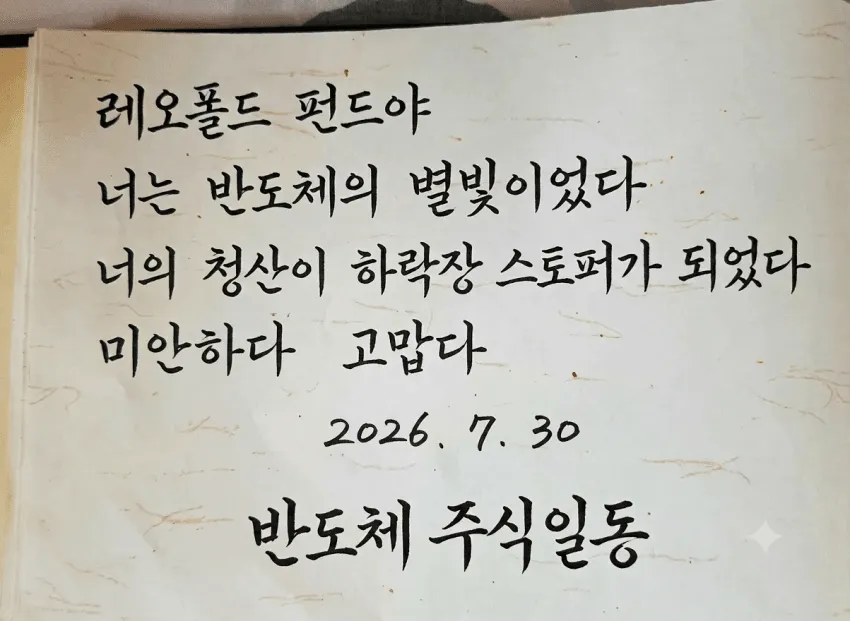 레오폴드 펀드야
너는 반도체의 별빛이었다
너의 청산이 하락장 스토퍼가 되었다
미안하다 고맙다
2026. 7. 30
반도체 주식일동